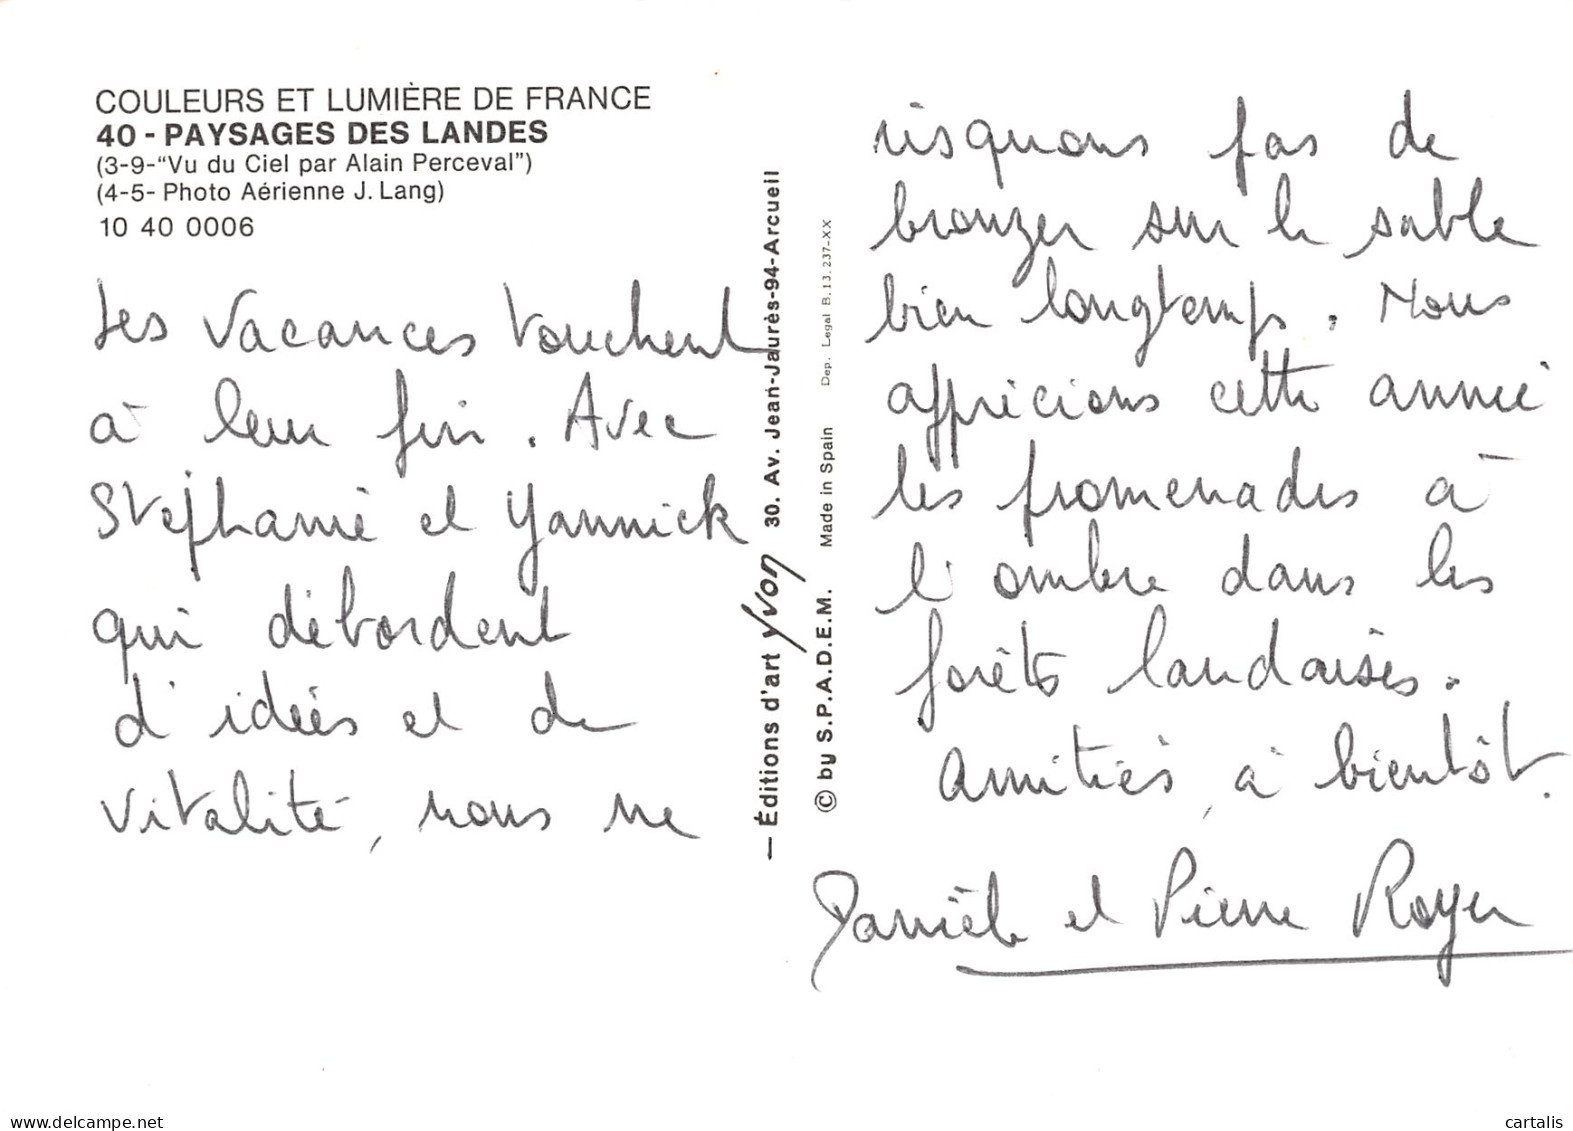 COULEURS ET LUMIÈRE DE FRANCE
40 - PAYSAGES DES LANDES
(3-9-"Vu du Ciel par Alain Perceval")
(4-5- Photo Aérienne J. Lang)
10 40 0006
Les vacances touchent
à leur fin. Avec
Stéphanie et Yannick
qui débordent
d'idées et de
vitalité, nous ne
— Éditions d'art yvon 30. Av. Jean-Jaurès-94-Arcueil
© by S.P.A.D.E.M. Made in Spain Dep. Legal B. 13. 237-XX
risquons pas de
bronzer sur le sable
bien longtemps. Nous
apprécions cette année
les promenades à
l'ombre dans les
forêts landaises.
Amitiés, à bientôt.
Danièle et Pierre Royer
delcampe.net
cartalis